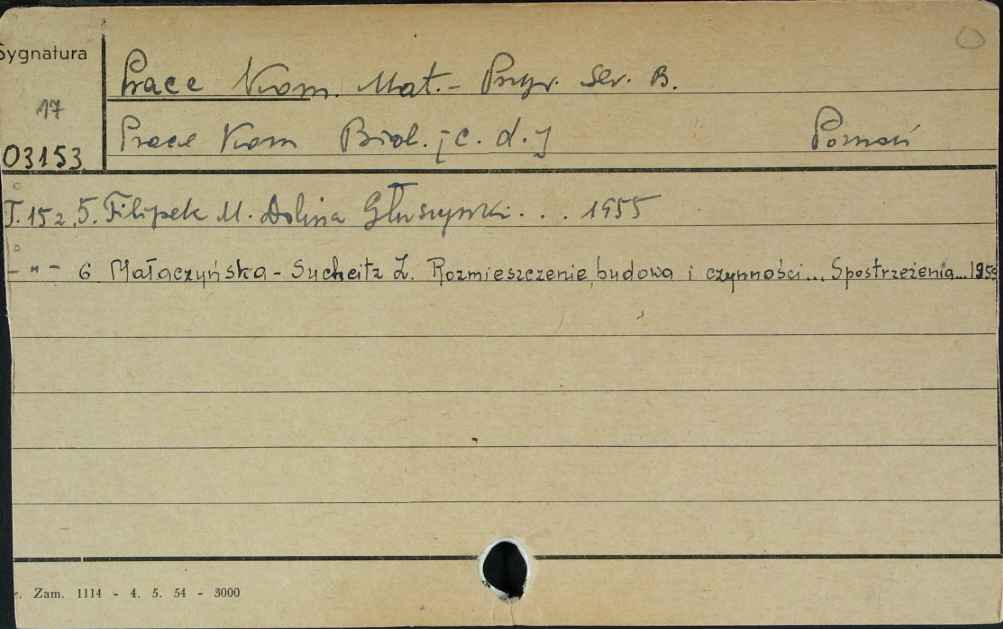 Sygnatura
17
03153
Prace Kom. Mat.- Przyr. Ser. B.
Prace Kom Biol. [c. d.] Poznań
T. 15 z. 5. Filipek M. Dolina Głuszynki . . . 1955
- " - 6 Małaczyńska - Sucheitz Z. Rozmieszczenie, budowa i czynności... Spostrzeżenia...
Zam. 1114 - 4. 5. 54 - 3000